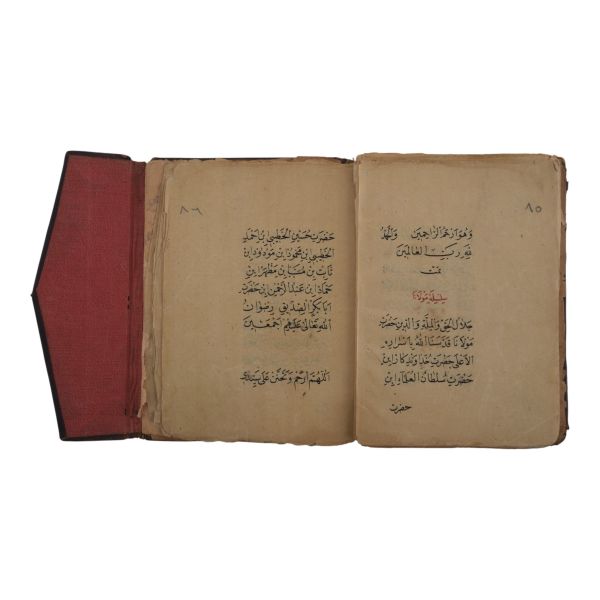 ٨٥
وَهُوَ اَرْحَمُ الرَّاحِمِينَ وَالْحَمْدُ
لِلّٰهِ رَبِّ الْعَالَمِينَ
تمت
سلسلۀ مولانا
جلال الحق والملة والدين حضرت
مولانا قدسنا الله باسراره
الاعلى حضرت خداوندكار ابن
حضرت سلطان العلماء ابن
حضرت
٨٦
حضرت حسين الخطيبى بن احمد
الخطيبى بن محمود ابن مودود ابن
ثابت بن ابن مطهر ابن
حماد ابن عبد الرحمن ابن حضرت
ابا بكر الصديق رضوان
الله تعالى عليهم اجمعين
اللهم ارحم وتحنن على سيدنا